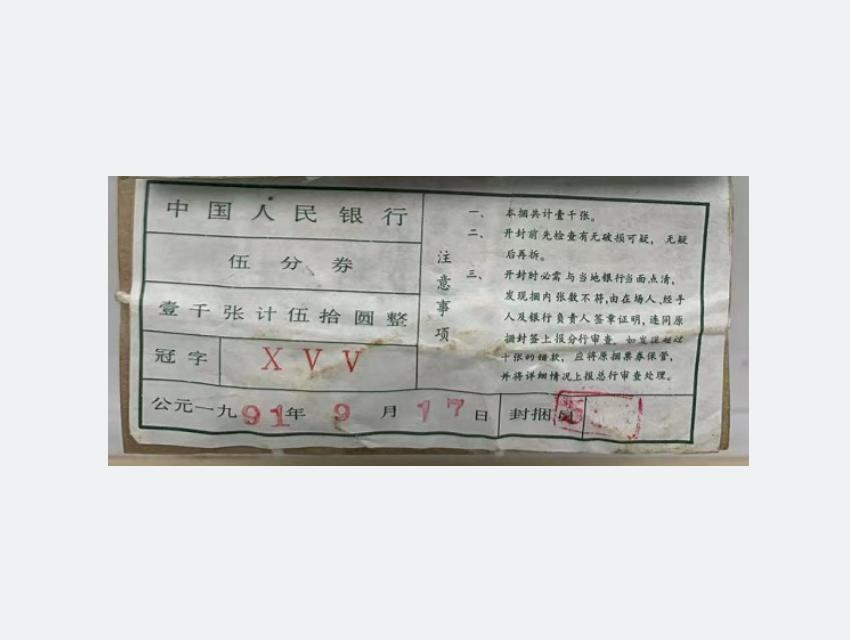 中国人民银行
伍分券
壹千张计伍拾圆整
冠字 XVV
公元一九91年9月17日
封捆员
注意事项
一、本捆共计壹千张。
二、开封前先检查有无破损可疑，无疑
后再拆。
三、开封时必需与当地银行当面点清，
发现捆内张数不符,由在场人、经手
人及银行负责人签章证明，连同原
捆封签上报分行审查，如发现超过
十张的错款，应将原捆票券保管，
并将详细情况上报总行审查处理。